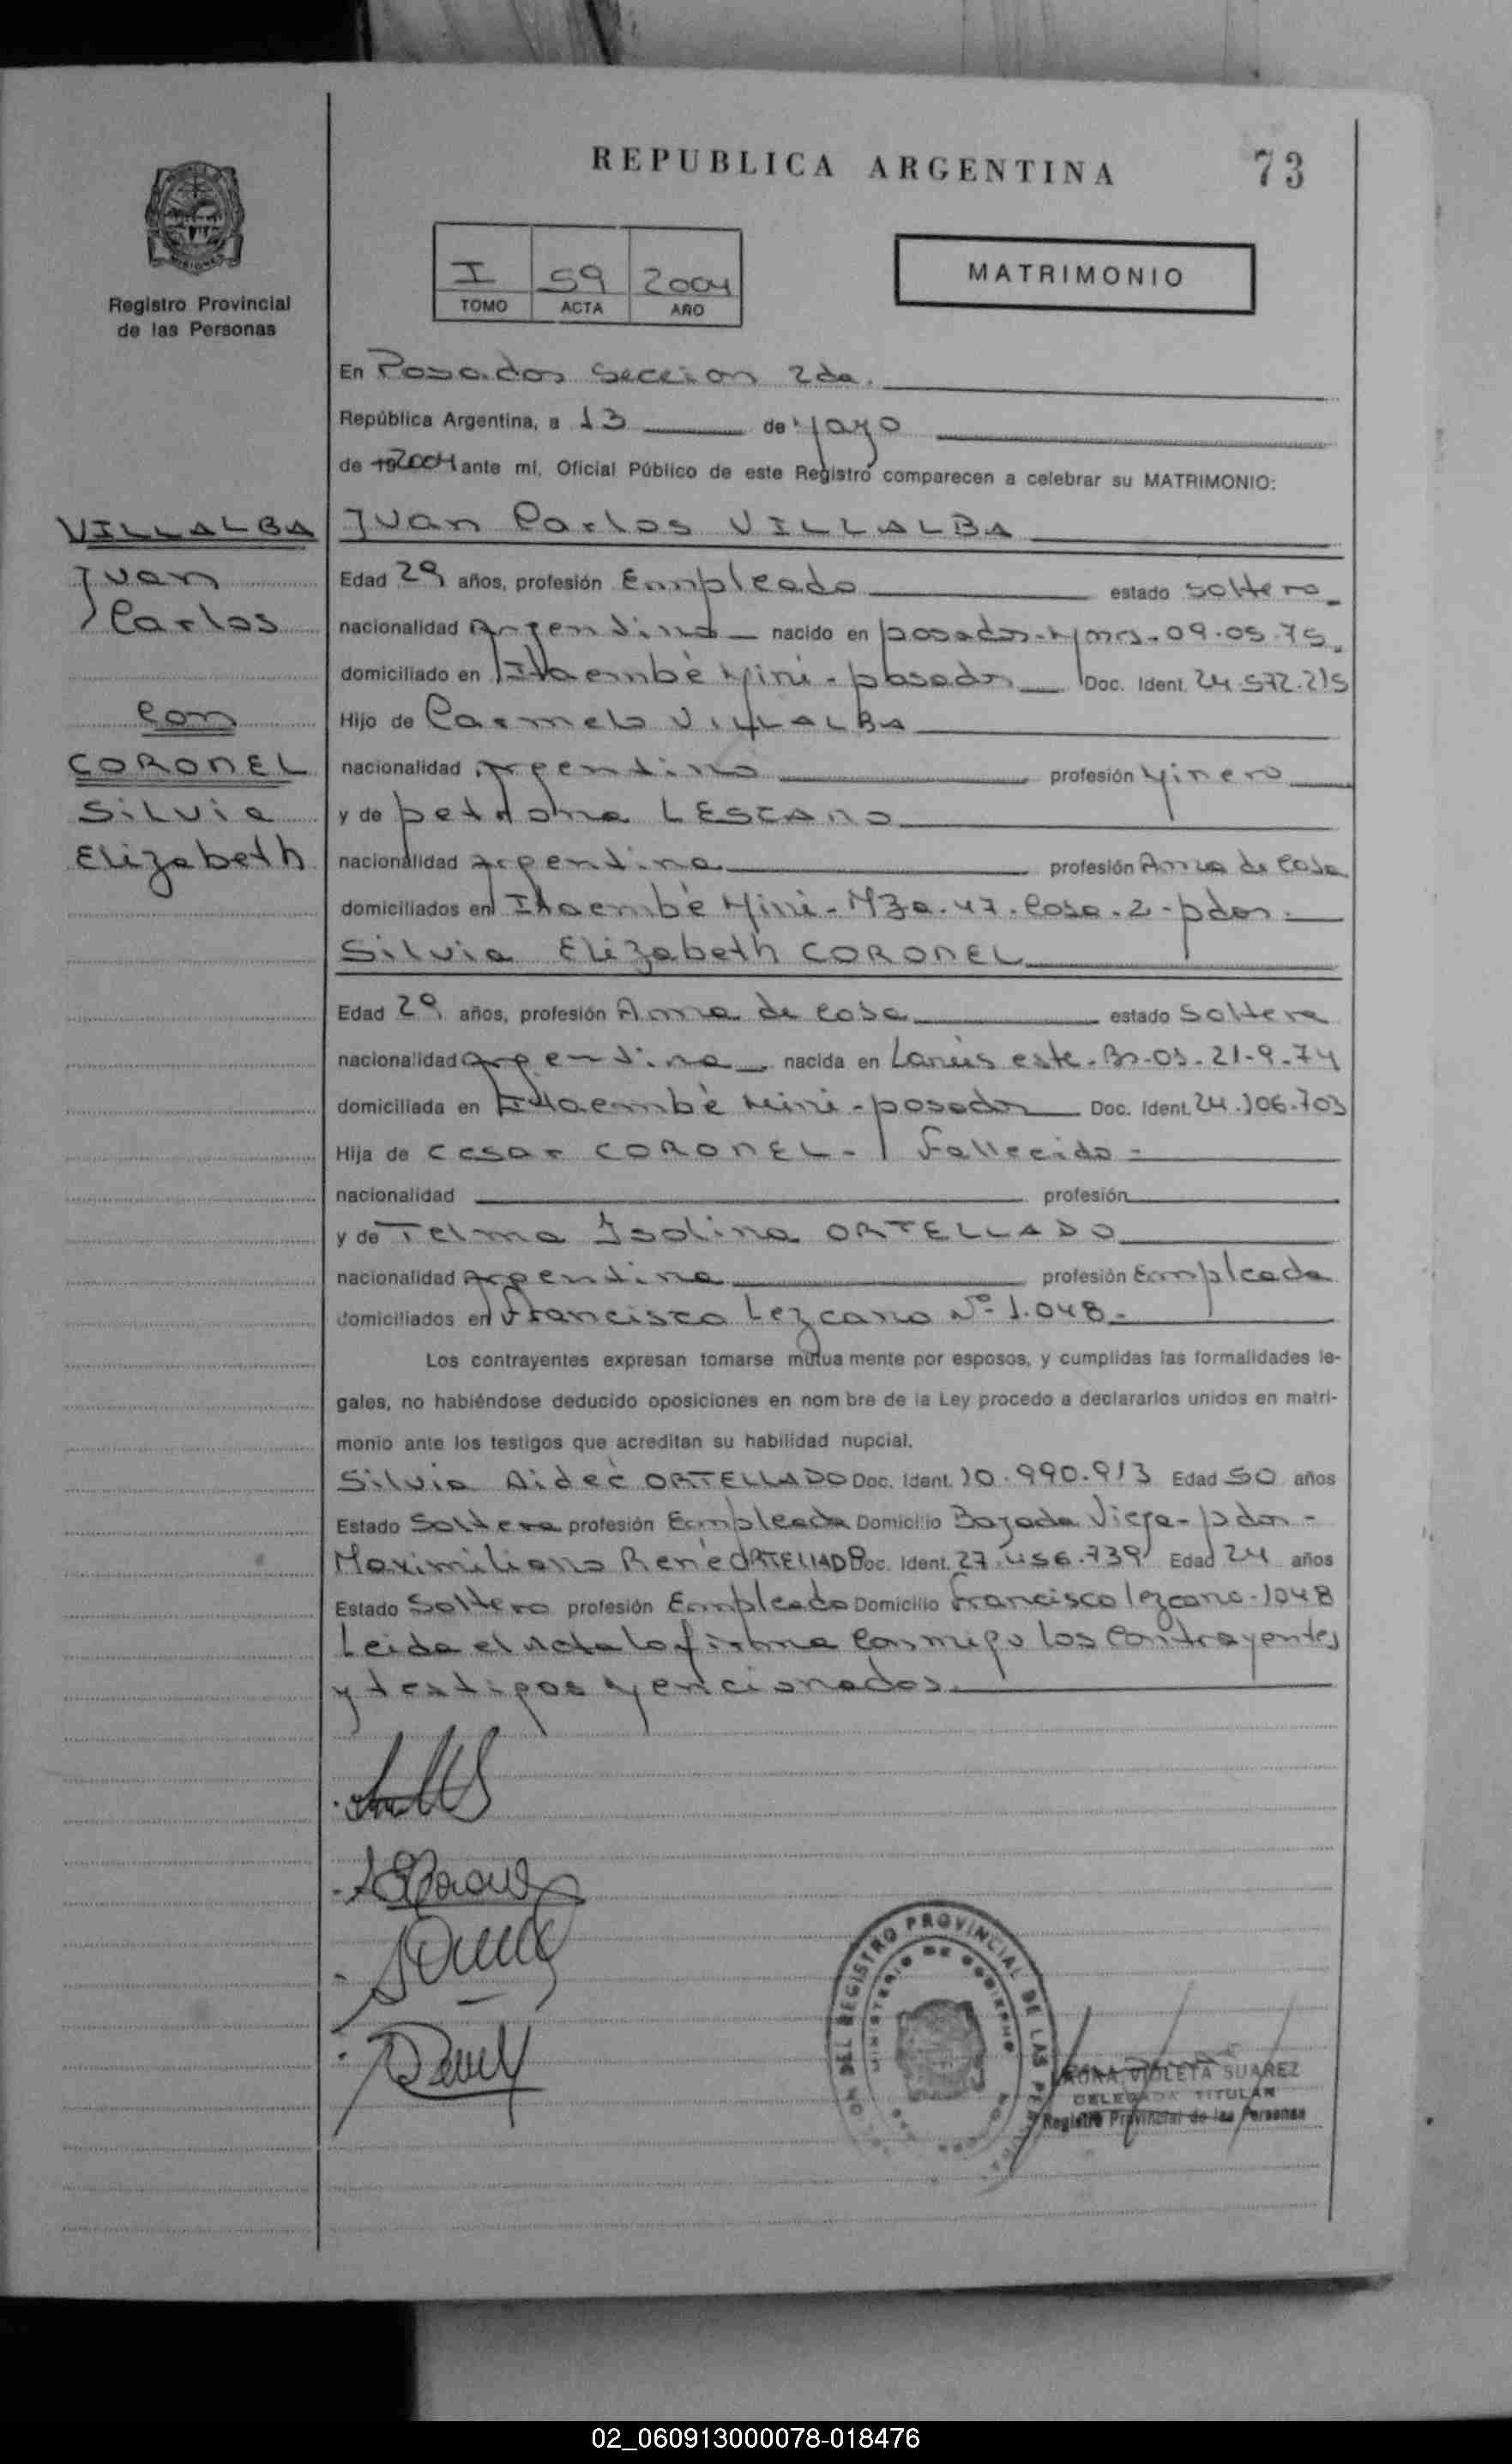 REPUBLICA ARGENTINA
73
MISIONES
Registro Provincial
de las Personas
I 59 2004
TOMO ACTA AÑO
MATRIMONIO
En Posadas Seccion 2da.
República Argentina, a 13 de Mayo
de 19 2004 ante mí, Oficial Público de este Registro comparecen a celebrar su MATRIMONIO:
VILLALBA
Juan
Carlos
Con
CORONEL
Silvia
Elizabeth
Juan Carlos VILLALBA
Edad 29 años, profesión Empleado estado Soltero
nacionalidad Argentino nacido en posadas-Mnes-09-05-75
domiciliado en Itaembé Mini-posadas Doc. Ident. 24.572.215
Hijo de Carmelo VILLALBA
nacionalidad Argentino profesión Minero
y de petrona LESCANO
nacionalidad Argentina profesión Ama de Casa
domiciliados en Itaembé Mini-Mza.47.Casa.2-pdas.
Silvia Elizabeth CORONEL
Edad 29 años, profesión Ama de Casa estado Soltera
nacionalidad Argentina nacida en Lanús este-Bs-As-21-9-74
domiciliada en Itaembé Mini-posadas Doc. Ident. 24.106.703
Hija de Cesar CORONEL-Fallecido-
nacionalidad profesión
y de Telma Isolina ORTELLADO
nacionalidad Argentina profesión Empleada
domiciliados en Francisco Lezcano Nº 1.048-
Los contrayentes expresan tomarse mútua mente por esposos, y cumplidas las formalidades le-
gales, no habiéndose deducido oposiciones en nom bre de la Ley procedo a declararlos unidos en matri-
monio ante los testigos que acreditan su habilidad nupcial.
Silvia Aideé ORTELLADO Doc. Ident. 10.990.913 Edad 50 años
Estado Soltera profesión Empleada Domicilio Bajada Vieja-pdas-
Maximiliano René ORTELLADO Doc. Ident. 27.456.739 Edad 24 años
Estado Soltero profesión Empleado Domicilio Francisco lezcano-1048
Leida el Acta la firma Conmigo los Contrayentes
y testigos Mencionados.
REGISTRO PROVINCIAL DE LAS
MINISTERIO DE GOBIERNO
VIOLETA SUAREZ
DELEGADA TITULAR
Registro Provincial de las Personas
02_060913000078-018476